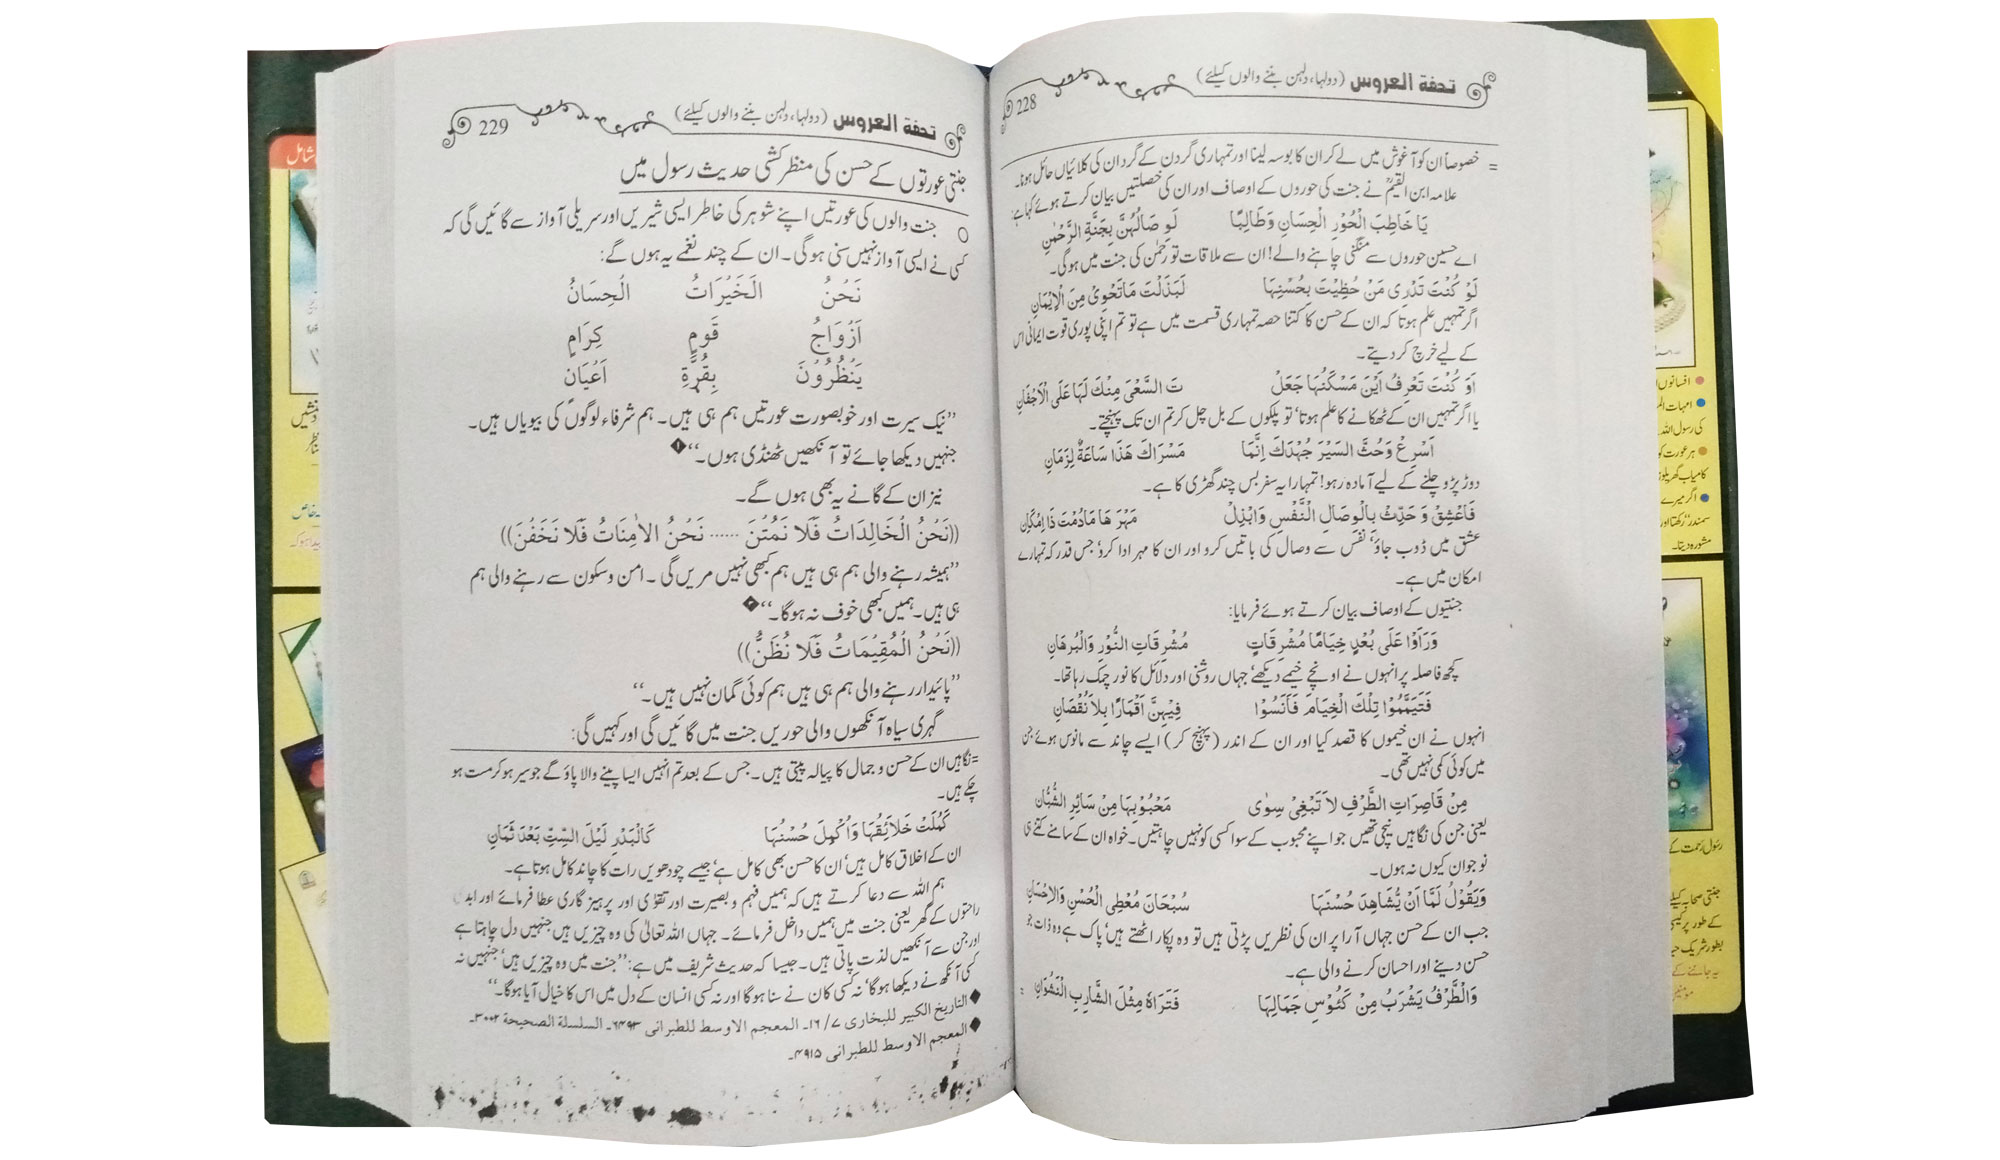 تحفة العروس (دولہا، دلہن بننے والوں کیلئے) 228
= خصوصاً ان کو آغوش میں لے کر ان کا بوسہ لینا اور تمہاری گردن کے گرد ان کی کلائیاں حائل ہونا۔
علامہ ابن القیمؒ نے جنت کی حوروں کے اوصاف اور ان کی خصلتیں بیان کرتے ہوئے کہا ہے:
يَا خَاطِبَ الْحُوْرِ الْحِسَانِ وَطَالِبًا لَوِ صَالُهُنَّ بِجَنَّةِ الرَّحْمٰنِ
اے حسین حوروں سے منگنی چاہنے والے! ان سے ملاقات تو رحمٰن کی جنت میں ہوگی۔
لَوْ كُنْتَ تَدْرِى مَنْ خُطِيْتَ بِحُسْنِهَا لَبَذَلْتَ مَا تَحْوِىْ مِنَ الْاِيْمَانِ
اگر تمہیں علم ہوتا کہ ان کے حسن کا کتنا حصہ تمہاری قسمت میں ہے تو تم اپنی پوری قوت ایمانی اس
کے لیے خرچ کر دیتے۔
اَوَ كُنْتَ تَعْرِفُ اَيْنَ مَسْكَنُهَا جَعَلْ تَ السَّعْىَ مِنْكَ لَهَا عَلَى الْاَجْفَانِ
یا اگر تمہیں ان کے ٹھکانے کا علم ہوتا‘ تو پلکوں کے بل چل کر تم ان تک پہنچتے۔
اَسْرِعْ وَحُثَّ السَّيْرَ جُهْدَكَ اِنَّمَا مَسْرَاكَ هَذَا سَاعَةٌ لِزَمَانِ
دوڑ پڑو چلنے کے لیے آمادہ رہو! تمہارا یہ سفر بس چند گھڑی کا ہے۔
فَاعْشِقْ وَ حَدِّثْ بِالْوِصَالِ النَّفْسَ وَابْذِلْ مَهْرَ هَا مَادُمْتَ ذَا اِمْكَانِ
عشق میں ڈوب جاؤ‘ نفس سے وصال کی باتیں کرو اور ان کا مہر ادا کرو‘ جس قدر کہ تمہارے
امکان میں ہے۔
جنتیوں کے اوصاف بیان کرتے ہوئے فرمایا:
وَرَاَوْا عَلَى بُعْدٍ خِيَامًا مُشْرِفَاتٍ مُشْرِقَاتِ النُّوْرِ وَالْبُرهَانِ
کچھ فاصلہ پر انہوں نے اونچے خیمے دیکھے‘ جہاں روشنی اور دلائل کا نور چمک رہا تھا۔
فَتَيَمَّمُوْا تِلْكَ الْخِيَامَ فَاَنَسُوْا فِيْهِنَّ اَقْمَارًا بِلَا نُقْصَانِ
انہوں نے ان خیموں کا قصد کیا اور ان کے اندر (پہنچ کر) ایسے چاند سے مانوس ہوئے جن
میں کوئی کمی نہیں تھی۔
مِنْ قَاصِرَاتِ الطَّرْفِ لَا تَبْغِىْ سِوٰى مَحْبُوْبِهَا مِنْ سَائِرِ الشُّبَّانِ
یعنی جن کی نگاہیں نیچی تھیں جو اپنے محبوب کے سوا کسی کو نہیں چاہتیں۔ خواہ ان کے سامنے کتنے ہی
نوجوان کیوں نہ ہوں۔
وَيَقُوْلُ لَمَّا اَنْ يُّشَاهِدَ حُسْنَهَا سُبْحَانَ مُعْطِى الْحُسْنِ وَالْاِحْسَانِ
جب ان کے حسن جہاں آرا پر ان کی نظریں پڑتی ہیں تو وہ پکار اٹھتے ہیں‘ پاک ہے وہ ذات جو
حسن دینے اور احسان کرنے والی ہے۔
وَالطَّرْفُ يَشْرَبُ مِنْ كَئُوْسِ جَمَالِهَا فَتَرَاهُ مِثْلَ الشَّارِبِ النَّشْوَانِ =
تحفة العروس (دولہا، دلہن بننے والوں کیلئے) 229
جنتی عورتوں کے حسن کی منظر کشی حدیث رسول میں
○ جنت والوں کی عورتیں اپنے شوہر کی خاطر ایسی شیریں اور سریلی آواز سے گائیں گی کہ
کسی نے ایسی آواز نہیں سنی ہوگی۔ ان کے چند نغمے یہ ہوں گے:
نَحْنُ الْخَيْرَاتُ الْحِسَانُ
اَزْوَاجُ قَومٍ كِرَامٍ
يَنْظُرُوْنَ بِقُرَّةِ اَعْيَانٍ
”نیک سیرت اور خوبصورت عورتیں ہم ہی ہیں۔ ہم شرفاء لوگوں کی بیویاں ہیں۔
جنہیں دیکھا جائے تو آنکھیں ٹھنڈی ہوں۔“ ۱
نیز ان کے گانے یہ بھی ہوں گے۔
((نَحْنُ الْخَالِدَاتُ فَلَا نَمُتْنَ ...... نَحْنُ الْاٰمِنَاتُ فَلَا نَخَفْنَ))
”ہمیشہ رہنے والی ہم ہی ہیں ہم کبھی نہیں مریں گی۔ امن و سکون سے رہنے والی ہم
ہی ہیں۔ ہمیں کبھی خوف نہ ہوگا۔“ ۲
((نَحْنُ الْمُقِيْمَاتُ فَلَا نُظَنُّ))
”پائیدار رہنے والی ہم ہی ہیں ہم کوئی گمان نہیں ہیں۔“
گہری سیاہ آنکھوں والی حوریں جنت میں گائیں گی اور کہیں گی:
= نگاہیں ان کے حسن و جمال کا پیالہ پیتی ہیں۔ جس کے بعد تم انہیں ایسا پینے والا پاؤ گے جو سیر ہو کر مست ہو
چکے ہیں۔
كَمُلَتْ خَلَائِقُهَا وَاُكْمِلَ حُسْنُهَا كَالْبَدْرِ لَيْلَ السِّتِّ بَعْدَ ثَمَانِ
ان کے اخلاق کامل ہیں‘ ان کا حسن بھی کامل ہے‘ جیسے چودھویں رات کا چاند کامل ہوتا ہے۔
ہم اللہ سے دعا کرتے ہیں کہ ہمیں فہم و بصیرت اور تقویٰ اور پرہیز گاری عطا فرمائے اور ابدی
راحتوں کے گھر یعنی جنت میں ہمیں داخل فرمائے۔ جہاں اللہ تعالیٰ کی وہ چیزیں ہیں جنہیں دل چاہتا ہے
اور جن سے آنکھیں لذت پاتی ہیں۔ جیسا کہ حدیث شریف میں ہے: ”جنت میں وہ چیزیں ہیں‘ جنہیں نہ
کسی آنکھ نے دیکھا ہوگا‘ نہ کسی کان نے سنا ہوگا اور نہ کسی انسان کے دل میں اس کا خیال آیا ہوگا۔“
◆ التاريخ الكبير للبخارى ۷/ ۱۶۔ المعجم الاوسط للطبرانى ۶۴۹۳۔ السلسلة الصحيحة ۳۰۰۲۔
◆ المعجم الاوسط للطبرانى ۴۹۱۵۔
افسانوں
امہات الم
کی رسول اللہ
ہر عورت کو
کامیاب گھریلو
اگر میرے
سمندر‘‘ رکھتا اور
مشورہ دیتا۔
رسول رحمت کے
جنتی صحابہ کیلئے
کے طور پر
بطور شریک
شامل
خاص